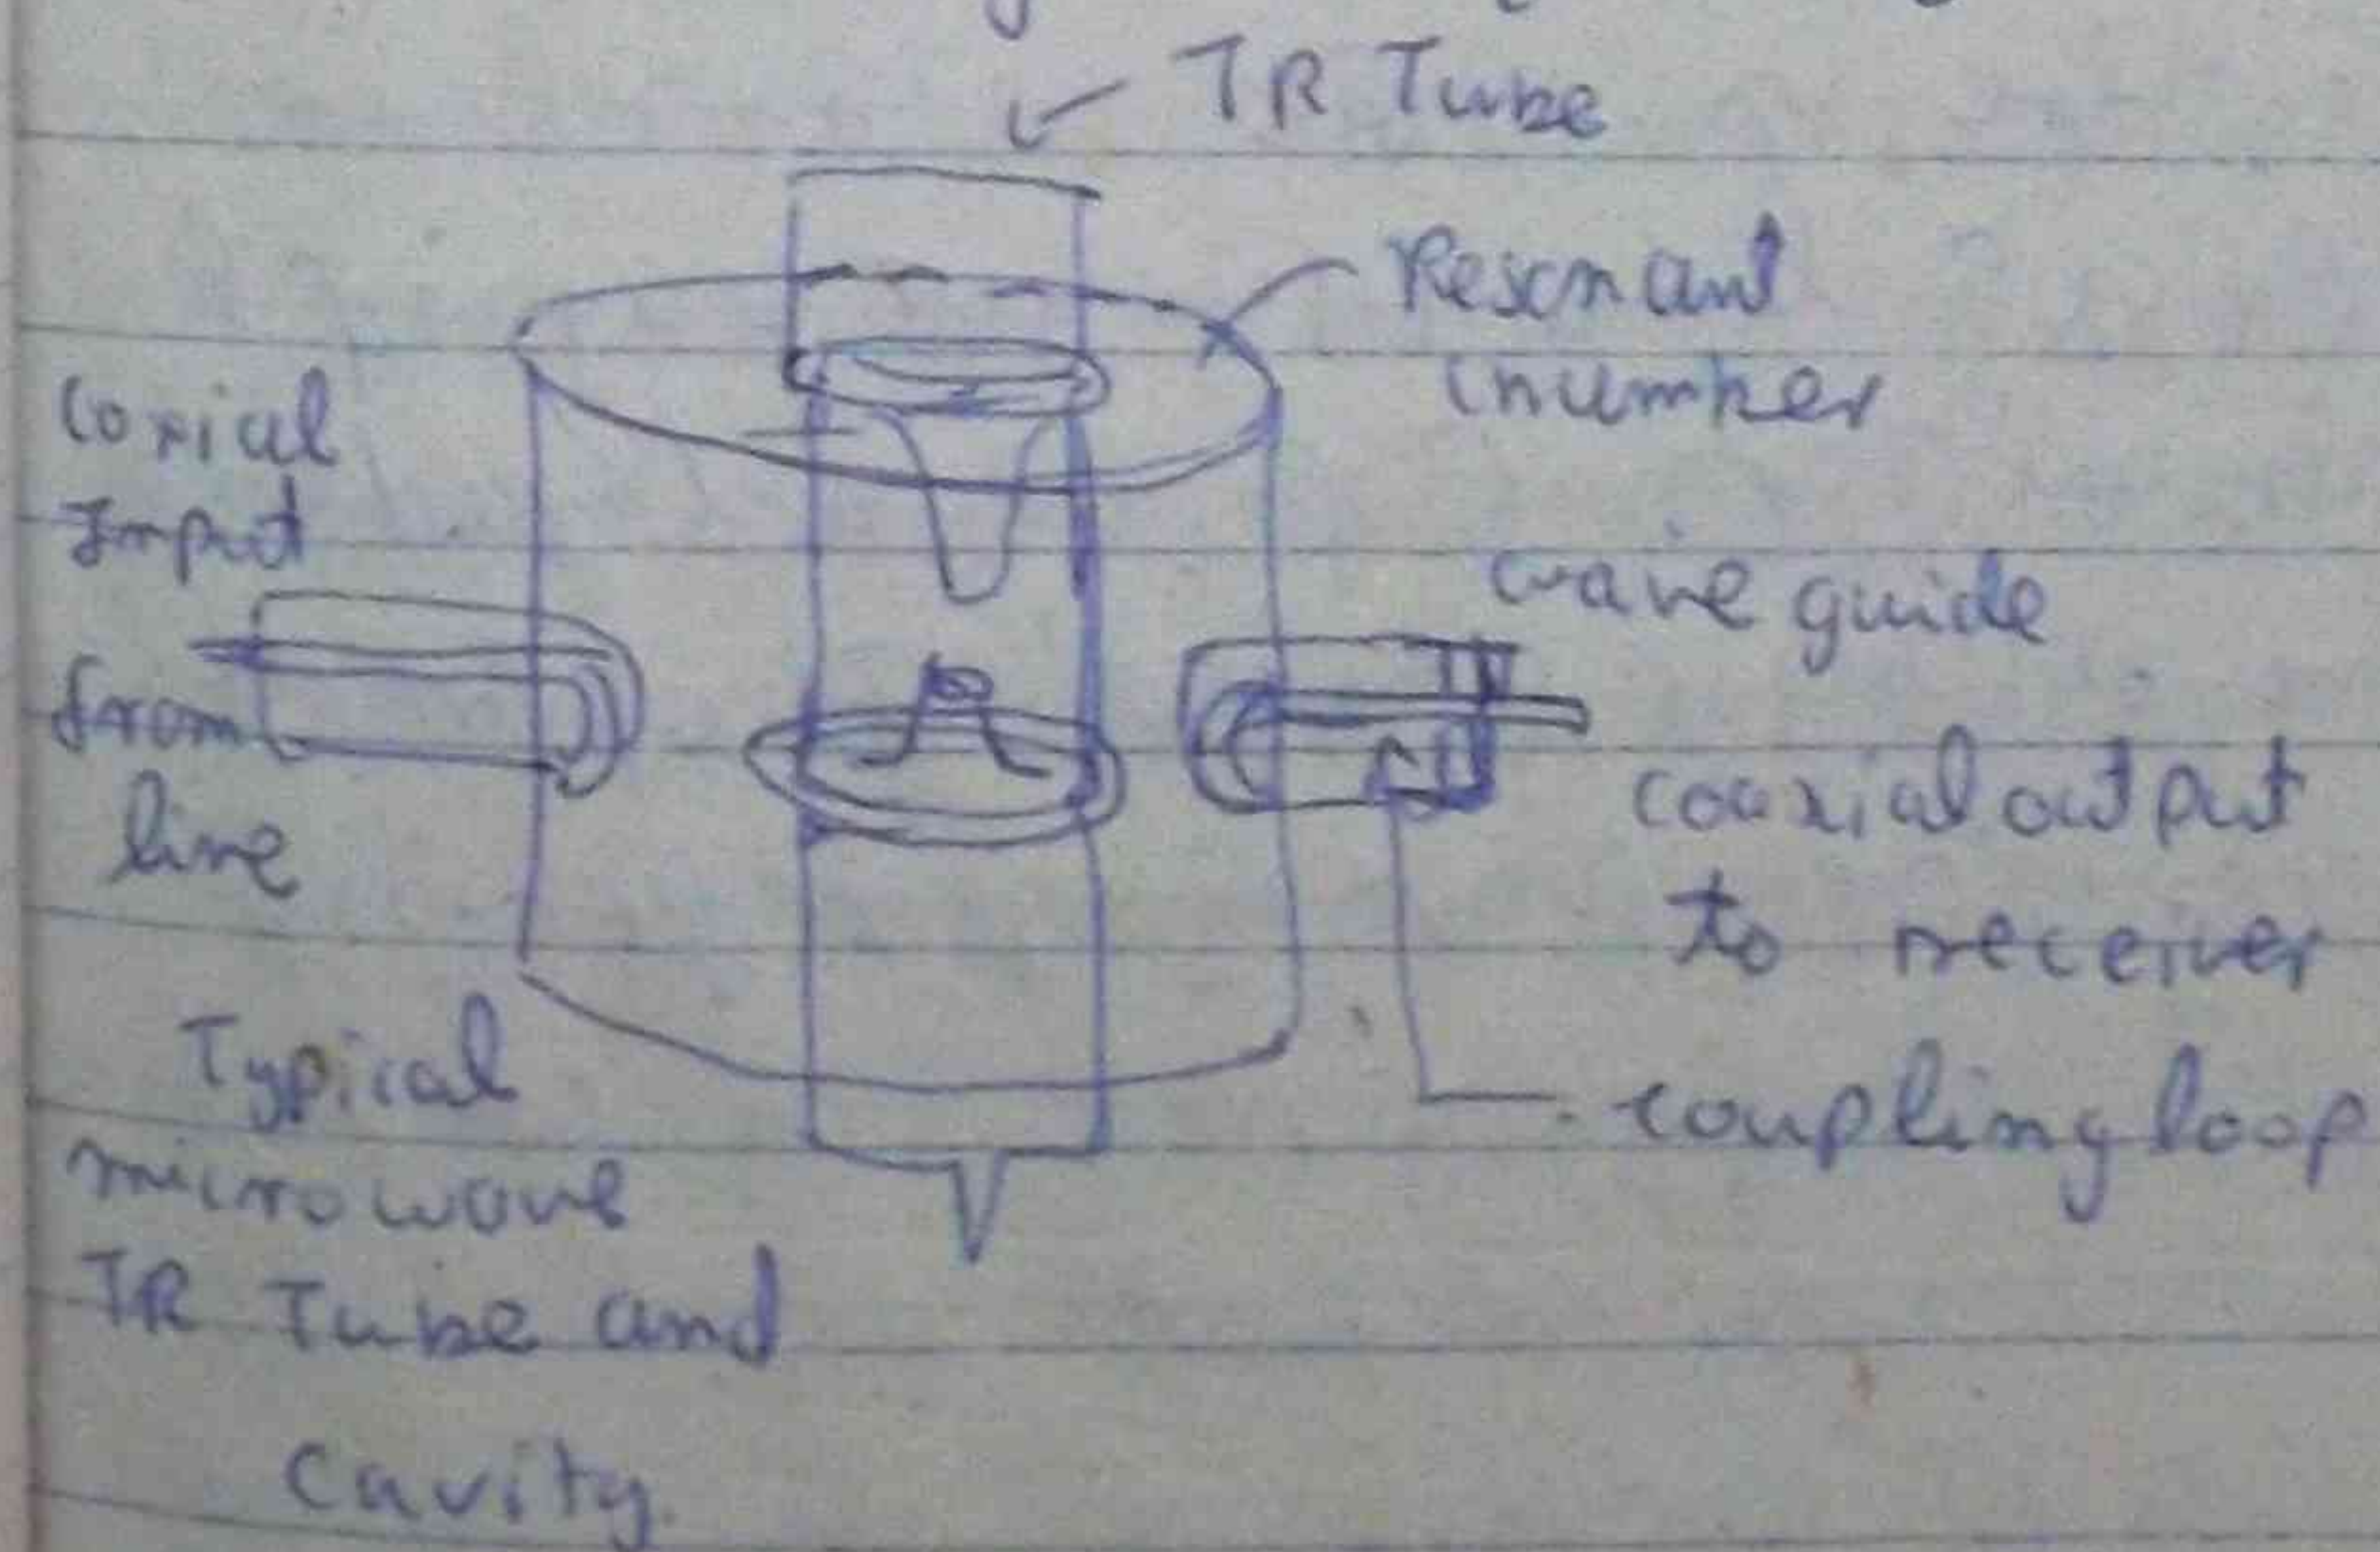 TR Tube
Resonant
chamber
Coxial
Input
from
line
wave guide
coaxial output
to receiver
coupling loop
Typical
microwave
TR Tube and
Cavity.